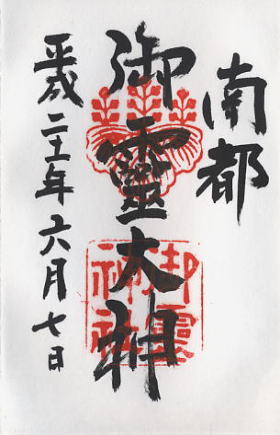 南都
御靈大神
平成二十一年六月七日
御霊
神社